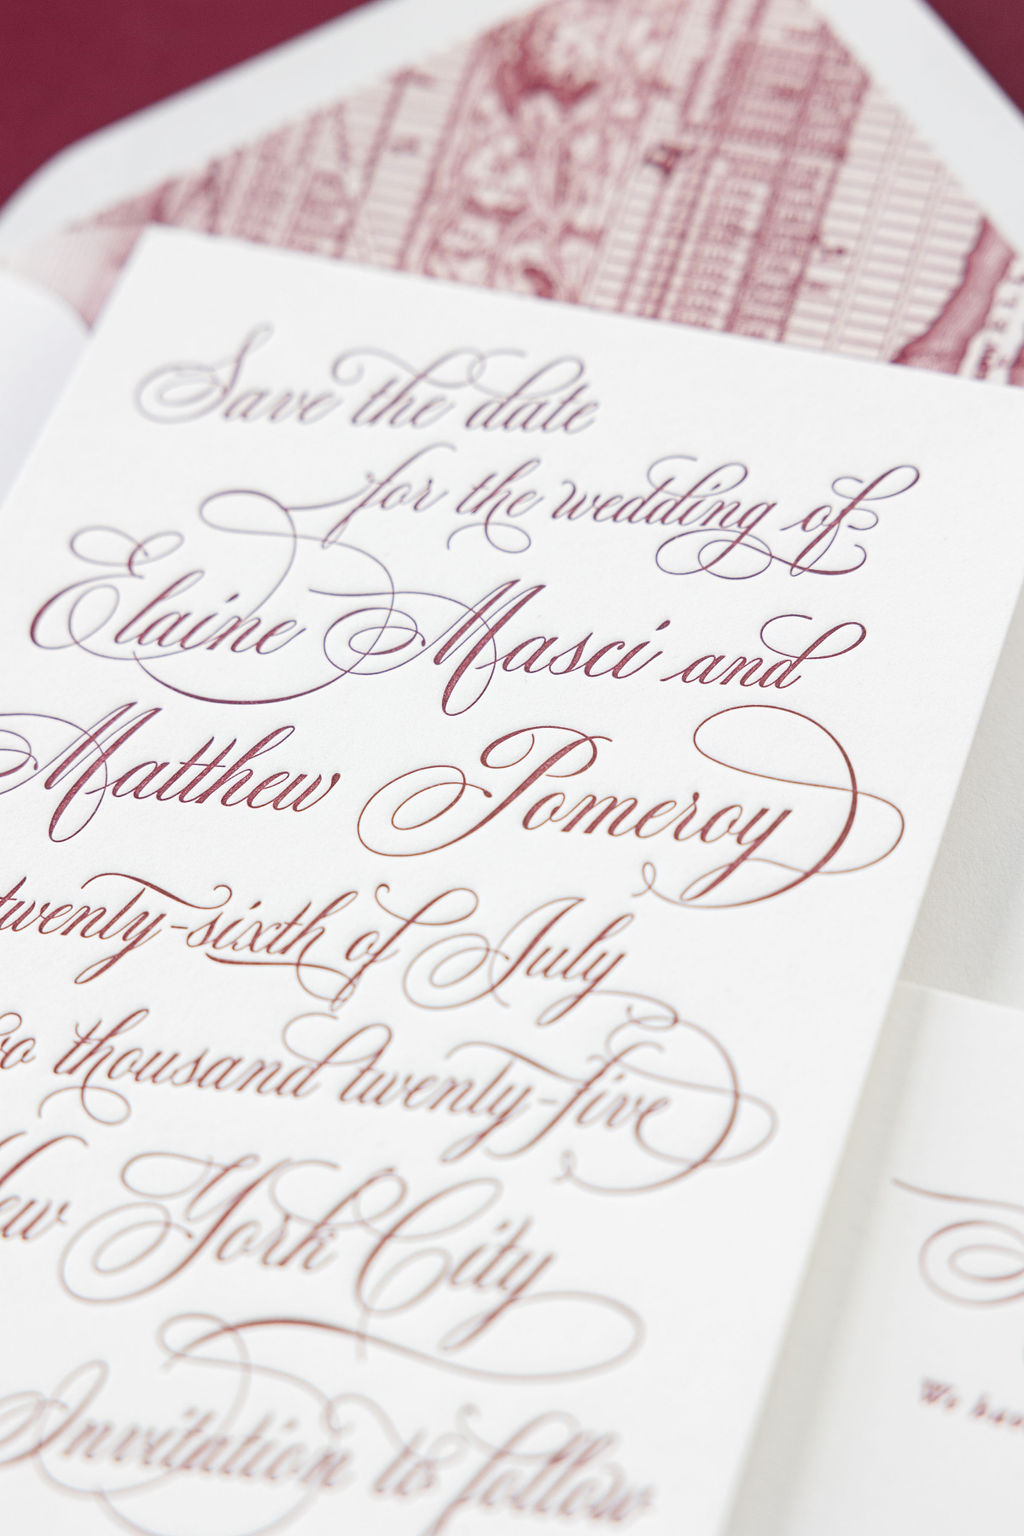 Save the date
for the wedding of
Elaine Masci and
Matthew Pomeroy
twenty-sixth of July
thousand twenty-five
York City
Invitation to follow
We